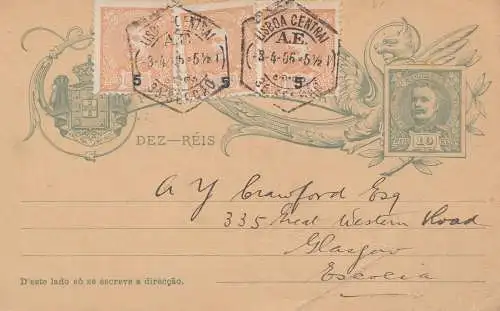 LISBOA CENTRAL LISBOA CENTRAL
A.E. A.E.
3-4-06-5½T 3-4-06-5½T
5 5 5
DEZ—RÉIS
10
A Y Crawford Esq
335 Great Western Road
Glasgow
Escocia
D'este lado só se escreve a direcção.